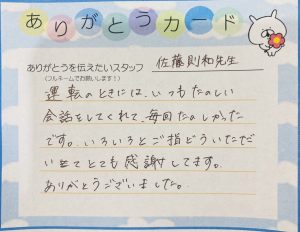 ありがとうカード
ありがとうを伝えたいスタッフ
(フルネームでお願いします!)
佐藤則和先生
運転のときには、いつもたのしい
会話をしてくれて、毎回たのしかった
です。いろいろとご指どういただ
いてとても感謝してます。
ありがとうございました。